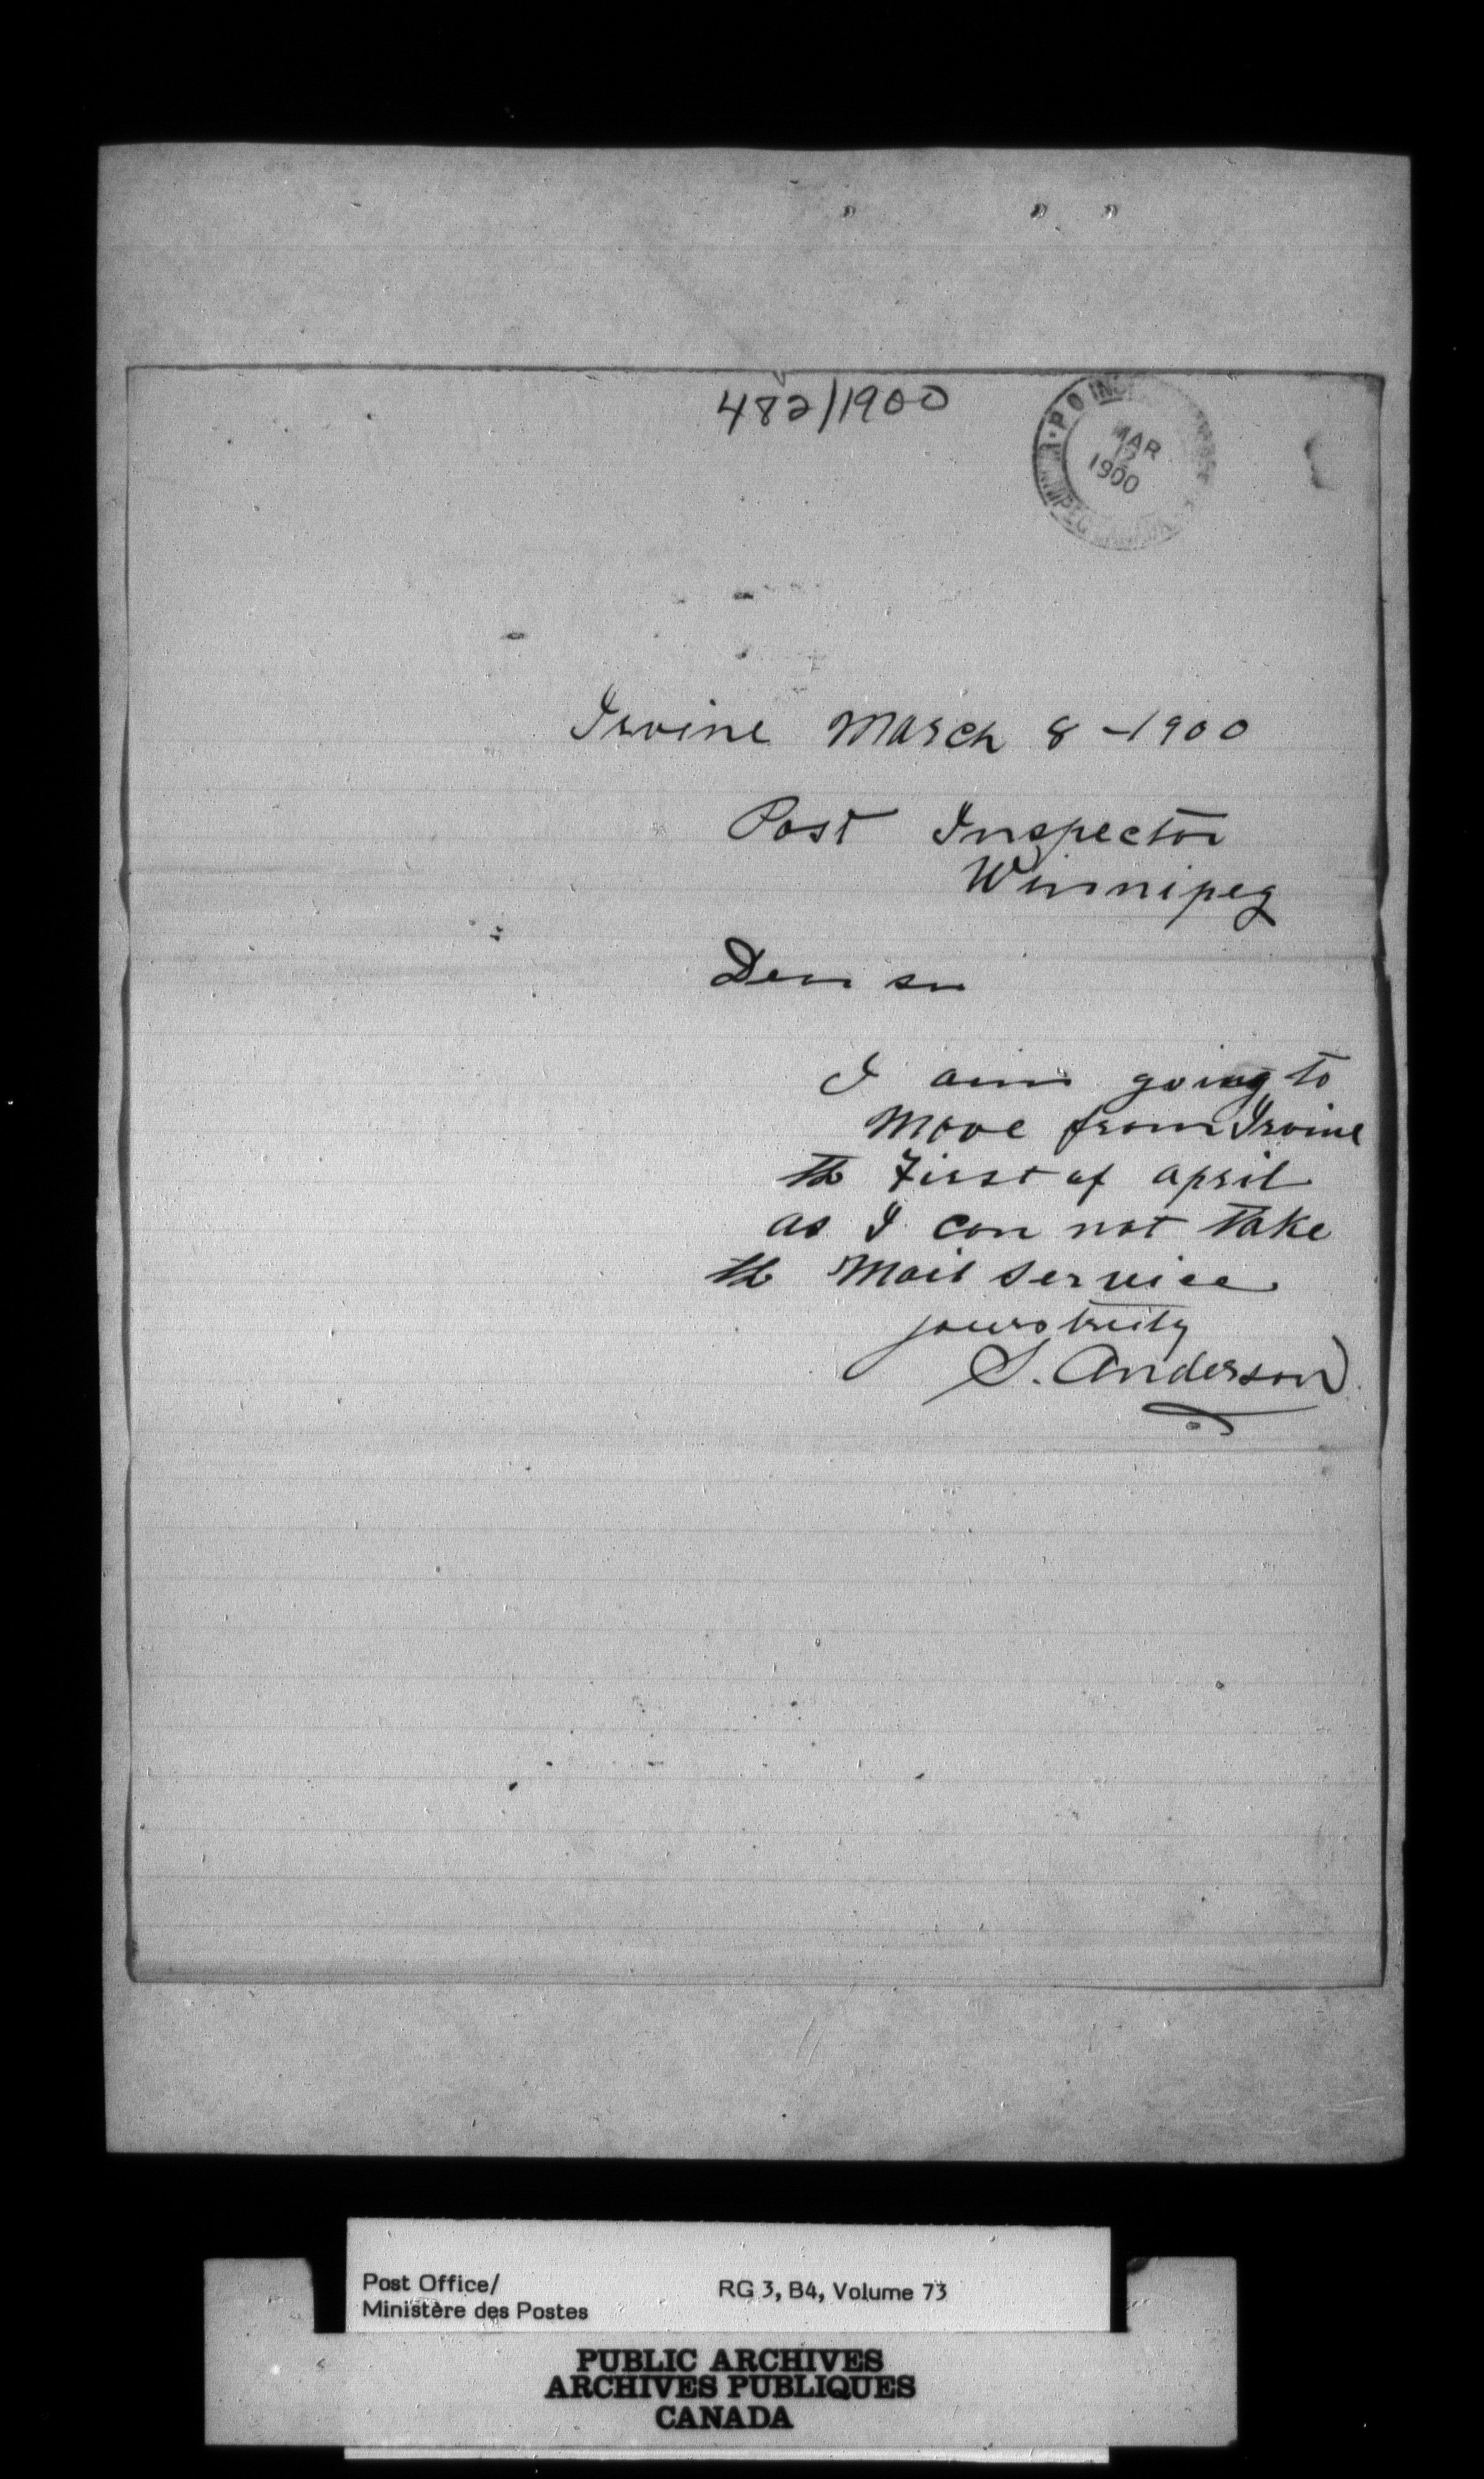 482/1900
P.O. INS
MAR
12
1900
Irvine March 8 - 1900
Post Inspector
Winnipeg
Dear sir
I am going to
Move from Irvine
the First of april
as I can not take
the Mail service
yours truly
S. Anderson
Post Office/
Ministère des Postes
RG 3, B4, Volume 73
PUBLIC ARCHIVES
ARCHIVES PUBLIQUES
CANADA